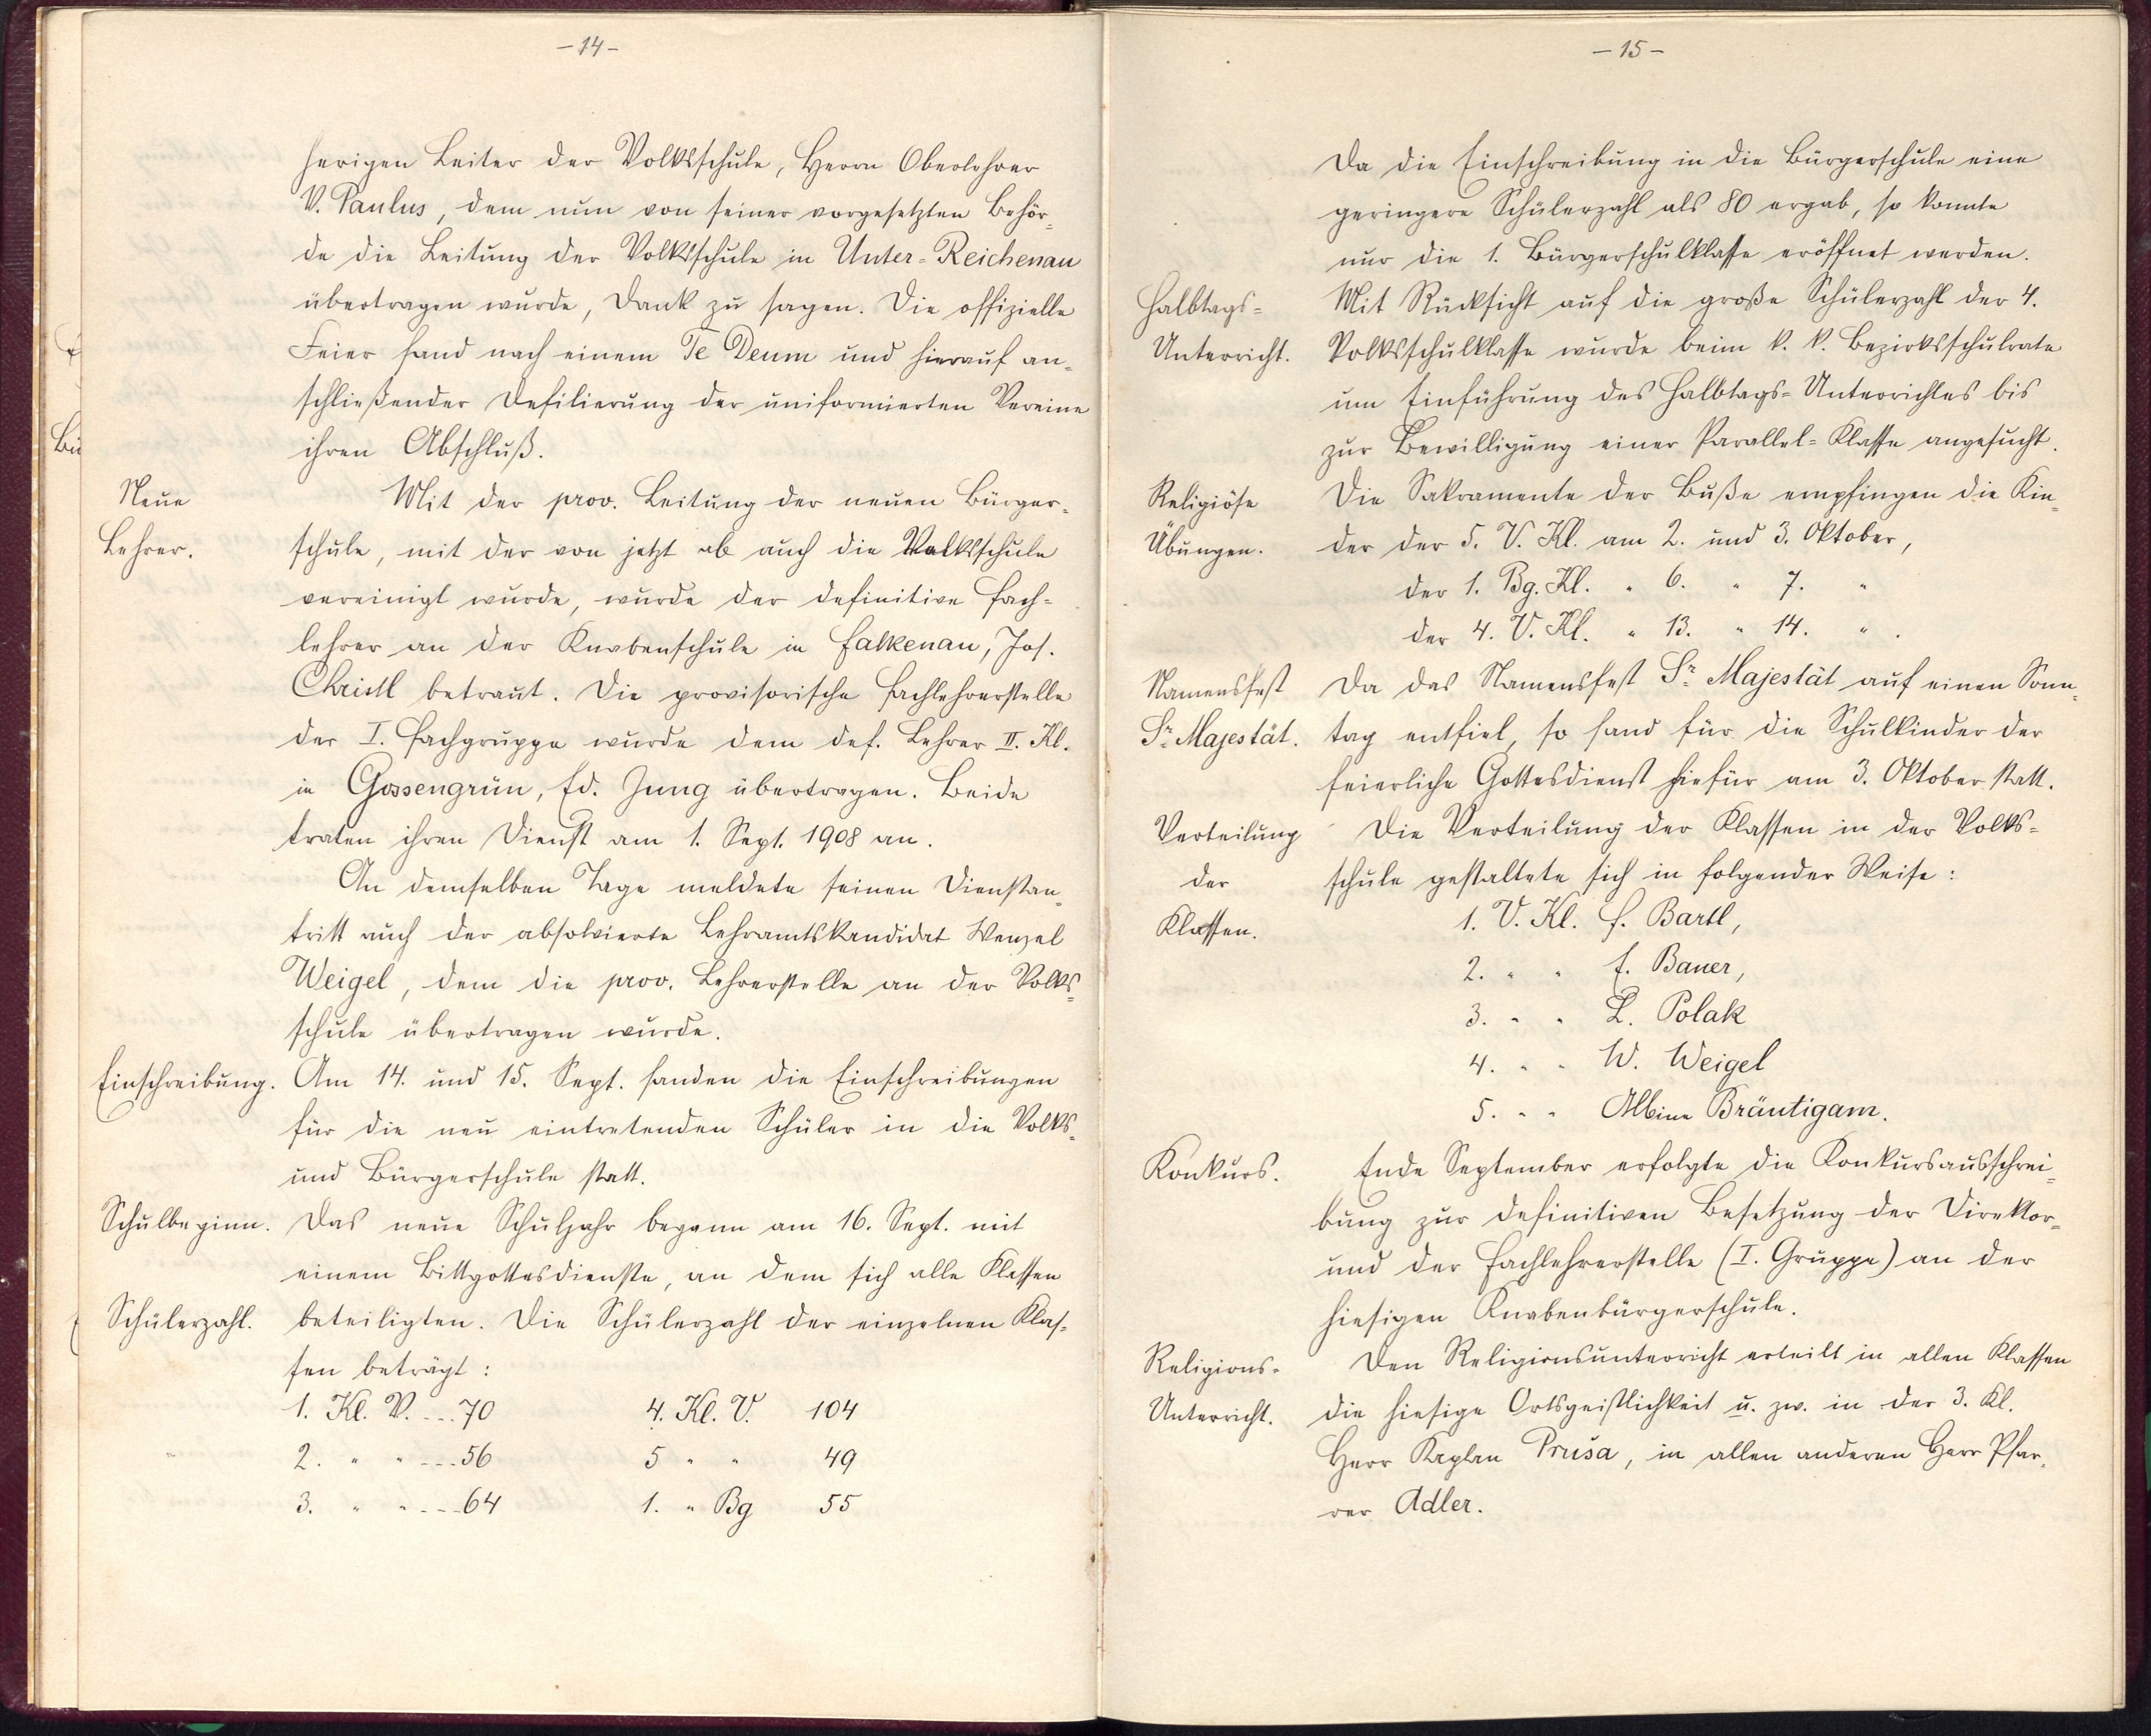 -14-
herigen Leiter der Volksschule, Herrn Oberlehrer
V. Paulus, dem nun von seiner vorgesetzten Behör-
de die Leitung der Volksschule in Unter-Reichenau
übertragen wurde, Dank zu sagen. Die offizielle
Feier fand nach einem Te Deum und hierauf an-
schließender Defilierung der uniformierten Vereine
ihren Abschluß.
Neue
Lehrer.
Mit der prov. Leitung der neuen Bürger-
schule, mit der von jetzt ab auch die Volksschule
vereinigt wurde, wurde der definitive Fach-
lehrer an der Knabenschule in Falkenau, Jos.
Christl betraut. Die provisorische Fachlehrerstelle
der I. Fachgruppe wurde dem def. Lehrer II. Kl.
in Gossengrün, Ed. Jung übertragen. Beide
traten ihren Dienst am 1. Sept. 1908 an.
An demselben Tage meldete seinen Dienstan-
tritt auch der absolvierte Lehramtskandidat Wenzel
Weigel, dem die prov. Lehrerstelle an der Volks-
schule übertragen wurde.
Einschreibung.
Am 14. und 15. Sept. fanden die Einschreibungen
für die neu eintretenden Schüler in die Volks-
und Bürgerschule statt.
Schulbeginn.
Das neue Schuljahr begann am 16. Sept. mit
einem Bittgottesdienste, an dem sich alle Klassen
Schülerzahl.
beteiligten. Die Schülerzahl der einzelnen Klas-
sen beträgt:
1. Kl. V. ... 70 4. Kl. V. 104
2. " " ---56 5 " " 49
3. " " ---64 1. " Bg 55
-15-
Da die Einschreibung in die Bürgerschule eine
geringere Schülerzahl als 80 ergab, so konnte
nur die 1. Bürgerschulklasse eröffnet werden.
Halbtags-
Unterricht.
Mit Rücksicht auf die große Schülerzahl der 4.
Volksschulklasse wurde beim k. k. Bezirksschulrate
um Einführung des Halbtags-Unterrichtes bis
zur Bewilligung einer Parallel-Klasse angesucht.
Religiöse
Übungen.
Die Sakramente der Buße empfingen die Kin-
der der 5. V. Kl. am 2. und 3. Oktober,
der 1. Bg. Kl. " 6. " 7. "
der 4. V. Kl. " 13. " 14. " .
Namensfest
Sr. Majestät.
Da das Namensfest Sr. Majestät auf einen Sonn-
tag entfiel, so fand für die Schulkinder der
feierliche Gottesdienst hiefür am 3. Oktober statt.
Verteilung
der
Klassen.
Die Verteilung der Klassen in der Volks-
schule gestaltete sich in folgender Weise:
1. V. Kl. F. Bartl,
2. " " E. Bauer,
3. " " L. Polak
4. " " W. Weigel
5. " " Albine Bräutigam.
Konkurs.
Ende September erfolgte die Konkursausschrei-
bung zur definitiven Besetzung der Direktor-
und der Fachlehrerstelle (I. Gruppe) an der
hiesigen Knabenbürgerschule.
Religions-
Unterricht.
Den Religionsunterricht erteilt in allen Klassen
die hiesige Ortsgeistlichkeit u. zw. in der 3. Kl.
Herr Kaplan Pruša, in allen anderen Herr Pfar-
rer Adler.